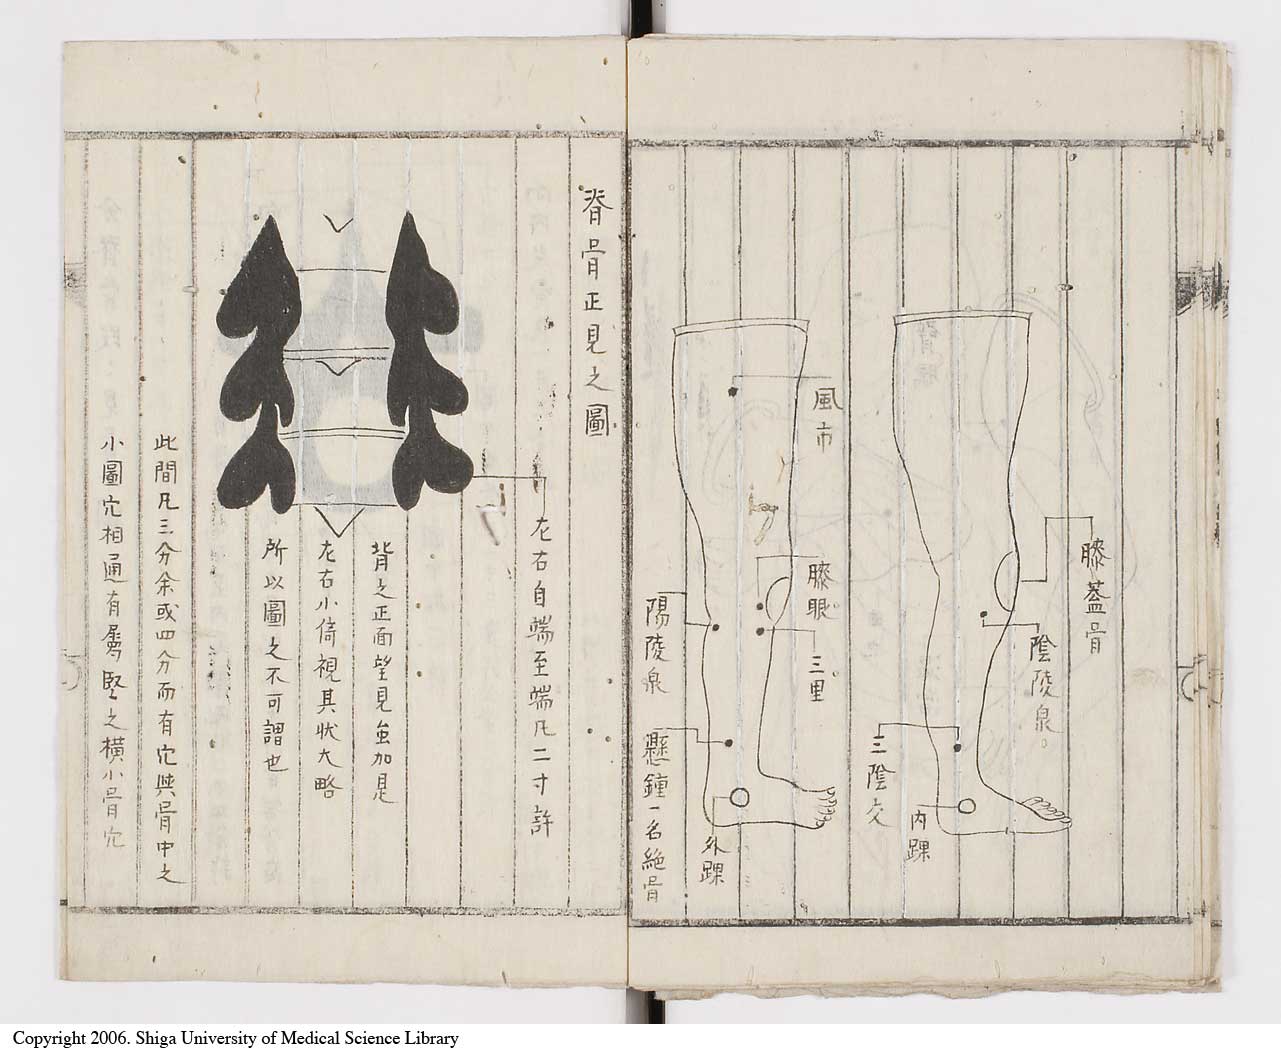 膝蓋骨
陰陵泉
内踝
三陰交
風市
膝眼
三里
外踝
陽陵泉
懸鐘一名絶骨
脊骨正見之圖
左右自端至端凡二寸許
背之正面望見
左右小倚視其状大略
所以圖之不可謂也
此間凡三分余或四分而有穴與骨中之
小圖穴相通有属堅之横小骨穴
Copyright 2006. Shiga University of Medical Science Library